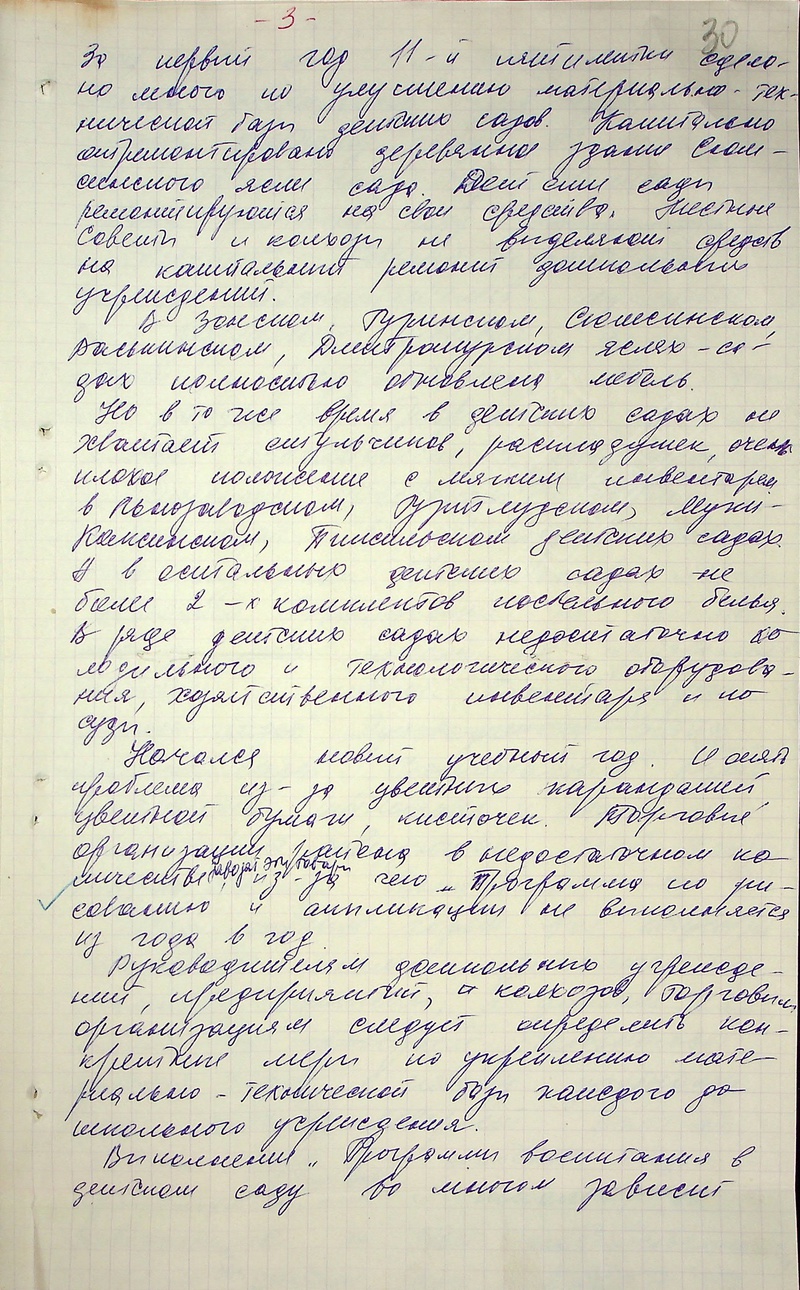 - 3 -
30
За первый год 11-й пятилетки сдела-
но много по улучшению материально-тех-
нической базы детских садов. Капитально
отремонтировано деревянное здание Сюм-
синского ясли сада. Детские сады
ремонтируются на свои средства. Местные
Советы и колхозы не выделяют средств
на капитальный ремонт дошкольных
учреждений.
В Зонском, Гуринском, Сюмсинском,
Васькинском, Дмитрошурском яслях-са-
дах полностью обновлена мебель.
Но в то же время в детских садах не
хватает стульчиков, раскладушек, очень
плохое положение с мягким инвентарем
в Пьнозаводском, Муки-
Каксинском, детских садах.
А в остальных детских садах не
более 2-х комплектов постельного белья.
В ряде детских садах недостаточно хо
лодильного и технологического оборудова-
ния, хозяйственного инвентаря и по
суды.
Начался новый учебный год. И опять
проблема из-за цветных карандашей,
цветной бумаги, кисточек. Торговые
организации района в недостаточном ко
личестве завозят эти товары, из-за чего „Программа по ри-
сованию и аппликации не выполняется
из года в год.
Руководителям дошкольных учрежде-
ний, предприятий, и колхозов, торговым
организациям следует определить кон-
кретные меры по укреплению мате-
риально-технической базы каждого до
школьного учреждения.
Выполнение „Программы воспитания в
детском саду во многом зависит